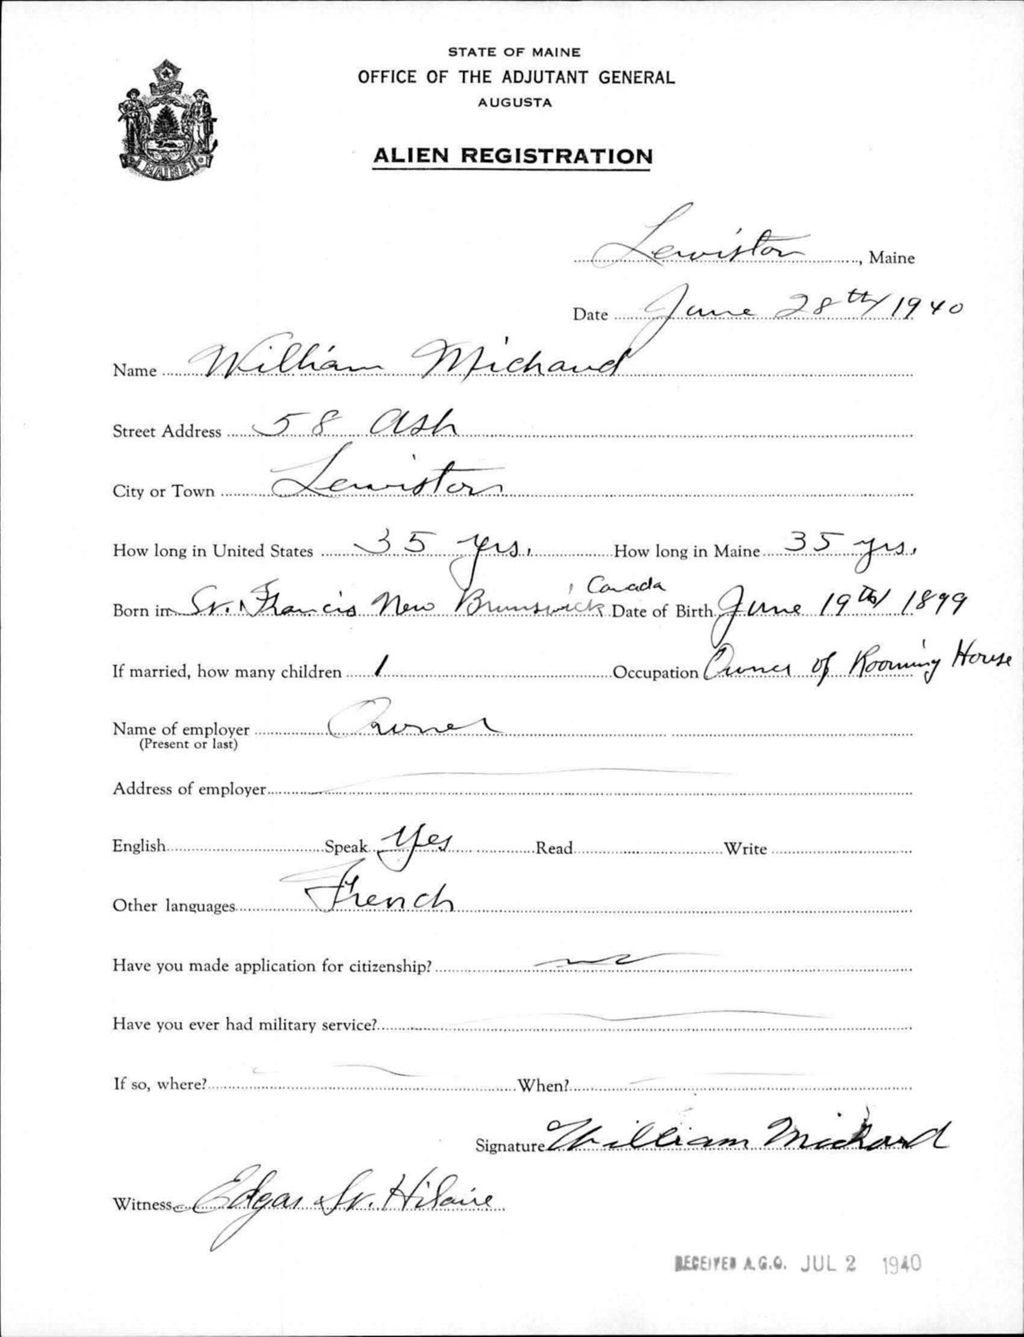 STATE OF MAINE
OFFICE OF THE ADJUTANT GENERAL
AUGUSTA
ALIEN REGISTRATION
MAINE
Lewiston, Maine
Date June 28th/1940
Name William Michaud
Street Address 58 Ash
City or Town Lewiston
How long in United States 35 yrs. How long in Maine 35 yrs.
Born in St. Francis New Brunswick, Canada Date of Birth June 19th/1899
If married, how many children 1 Occupation Owner of Rooming House
Name of employer Owner
(Present or last)
Address of employer
English Speak Yes Read Write
Other languages French
Have you made application for citizenship? no
Have you ever had military service?
If so, where? When?
Signature William Michaud
Witness Edgar St. Hilaire
RECEIVED A.G.O. JUL 2 1940